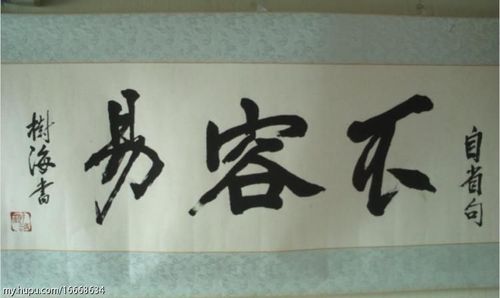 自省句
不容易
樹海書
my.hupu.com/16668634